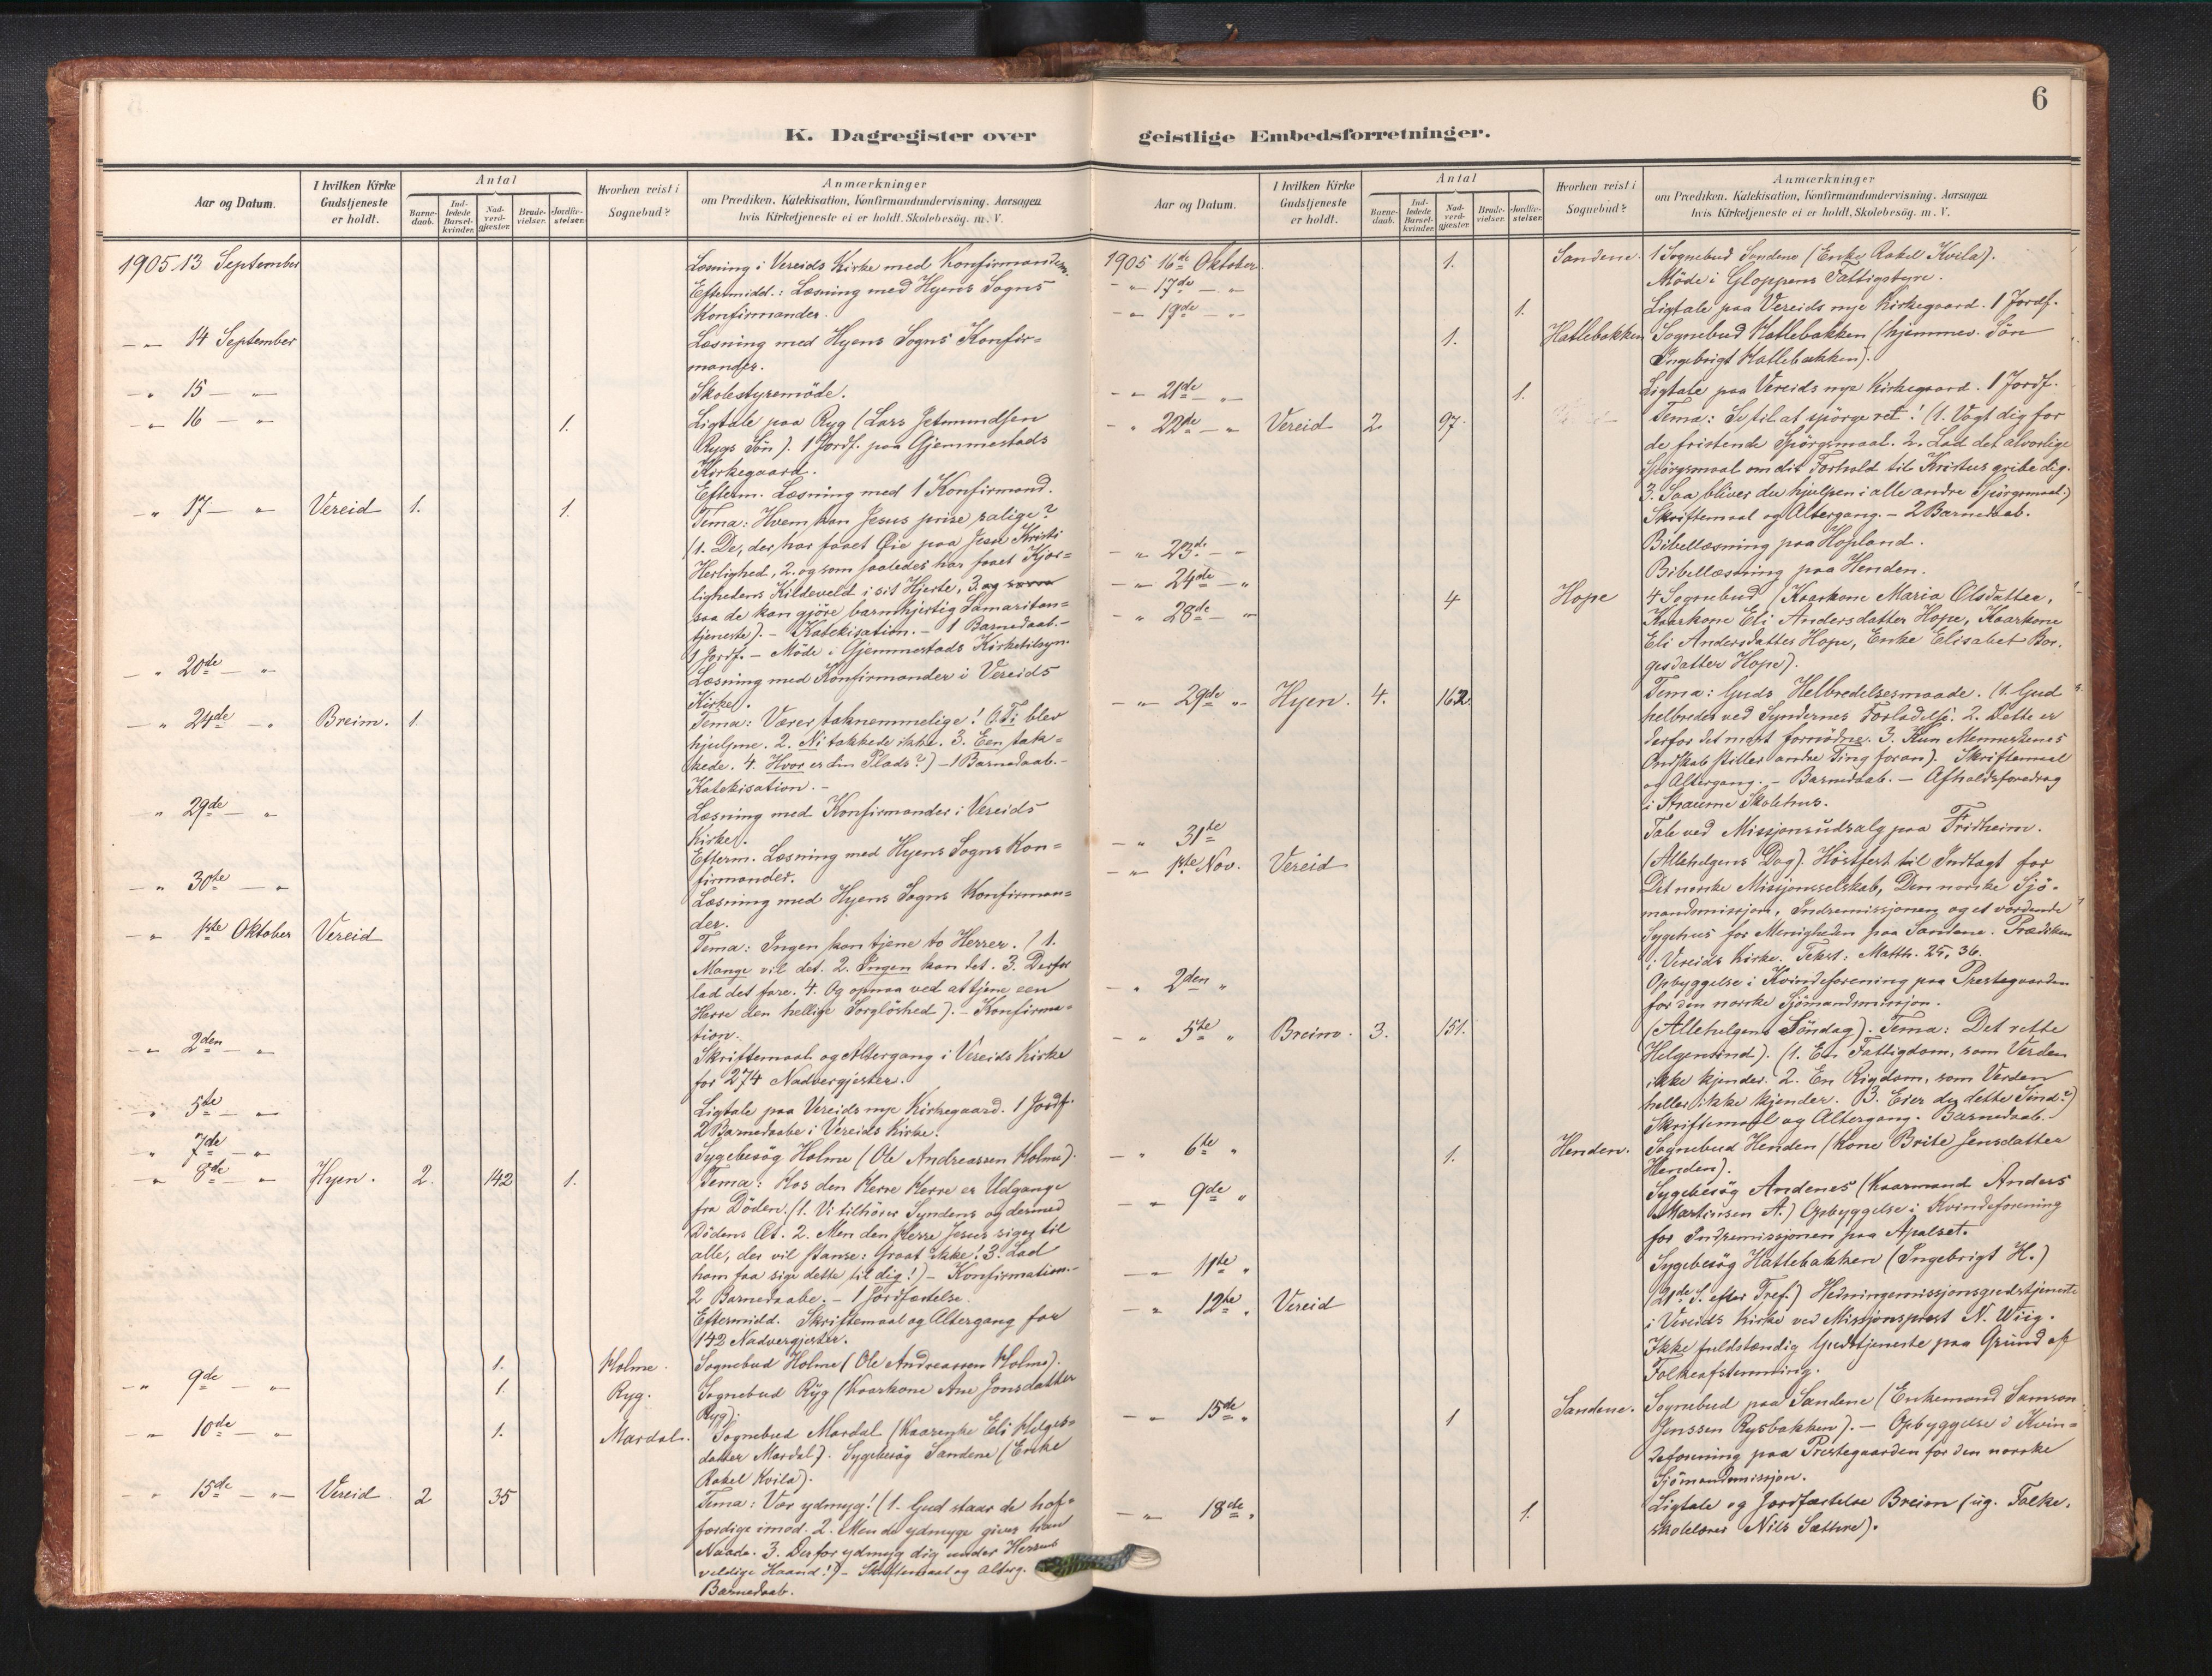 6
K. Dagregister over geistlige Embedsforretninger.
Aar og Datum.
I hvilken Kirke Gudstjeneste er holdt.
Antal
Barnedaab.
Indledede Barselkvinder.
Nadverdgjæster.
Brudevielser.
Jordfæstelser.
Hvorhen reist i Sognebud?
Anmærkninger
om Prædiken, Katekisation, Konfirmandundervisning, Aarsagen
hvis Kirketjeneste ei er holdt, Skolebesög, m. V.
1905 13 September
Læsning i Vereids Kirke med Konfirmander.
Eftermidd.: Læsning med Hyens Sogns
Konfirmander.
— " 14 September
Læsning med Hyens Sogns Konfir=
mander.
— " 15 — "
Skolestyremöde.
— " 16 — " 1.
Ligtale paa Ryg (Lars Jetmundsen
Rygs Sön). 1 Jordf. paa Gjemmestads
Kirkegaard.
Efterm. Læsning med 1 Konfirmand.
— " 17 — " Vereid 1. 1.
Tema: Hvem kan Jesus prise salige?
(1. De, der har faaet Öie paa Jesu Kristi
Herlighed, 2. og som saaledes har faaet Kjær=
lighedens Kildeveld i sit Hjerte, 3. og
saa de kan gjöre barmhjertig Samaritan=
tjeneste). – Katekisation. – 1 Barnedaab. –
1 Jordf. – Möde i Gjemmestads Kirketilsyn.
— " 20de — "
Læsning med Konfirmander i Vereids
Kirke.
— " 24de — " Breim. 1.
Tema: Værer taknemmelige! (1. Ti blev
hjulpne. 2. Ni takkede ikke. 3. Een tak=
kede. 4. Hvor er din Plads?) – 1 Barnedaab. –
Katekisation. –
— " 29de — "
Læsning med Konfirmander i Vereids
Kirke.
Efterm. Læsning med Hyens Sogns Kon=
firmander.
— " 30te — "
Læsning med Hyens Sogns Konfirman=
der.
— " 1ste Oktober Vereid
Tema: Ingen kan tjene to Herrer. (1.
Mange vil det. 2. Ingen kan det. 3. Derfor
lad det fare. 4. Og opnaa ved at tjene een
Herre den hellige Sorglöshed). – Konfirma=
tion.
— " 2den — "
Skriftemaal og Altergang i Vereids Kirke
for 274 Nadvergjester.
— " 5te — "
Ligtale paa Vereids nye Kirkegaard. 1 Jordf.
2 Barnedaabe i Vereids Kirke.
— " 7de — "
Sygebesög Holme (Ole Andreassen Holme).
— " 8de — " Hyen. 2. 142 1.
Tema: Hos den Herre Herre er Udgange
fra Döden. (1. Vi tilhörer Syndens og dermed
Dödens Æt. 2. Men den Herre Jesus siger til
alle, der vil stanse: Graat ikke! 3. Lad
ham faa sige dette til dig!) – Konfirmation. –
2 Barnedaabe. – 1 Jordfæstelse.
Eftermidd. Skriftemaal og Altergang for
142 Nadvergjester.
1. Holme.
Sognebud Holme (Ole Andreassen Holme).
— " 9de — " 1. Ryg.
Sognebud Ryg (Kaarkone Ane Jonsdatter
Ryg).
— " 10de — " 1. Mardal.
Sognebud Mardal (Kaarenke Eli Helges=
datter Mardal). Sygebesög Sandene (Enke
Rakel Kvila).
— " 15de — " Vereid. 2 35
Tema: Vær ydmyg! (1. Gud staar de hof=
færdige imod. 2. Men de ydmyge giver han
Naade. 3. Derfor ydmyg dig under Herrens
veldige Haand!) – Skriftemaal og Alterg.
Barnedaab.
Aar og Datum.
I hvilken Kirke Gudstjeneste er holdt.
Antal
Barnedaab.
Indledede Barselkvinder.
Nadverdgjæster.
Brudevielser.
Jordfæstelser.
Hvorhen reist i Sognebud?
Anmærkninger
om Prædiken, Katekisation, Konfirmandundervisning, Aarsagen
hvis Kirketjeneste ei er holdt, Skolebesög, m. V.
1905 16de Oktober. 1. Sandene.
1 Sognebud Sandene (Enke Rakel Kvila).
— " 17de — "
Möde i Gloppens Fattigstyre.
— " 19de — " 1.
Ligtale paa Vereids nye Kirkegaard. 1 Jordf.
1. Hatlebakken
Sognebud Hatlebakken (hjemmev. Sön
Ingebrigt Hatlebakken).
— " 21de — " 1.
Ligtale paa Vereids nye Kirkegaard. 1 Jordf.
— " 22de — " Vereid 2 97.
Tema: Se til at spörge ret! (1. Vogt dig for
de fristende Spörgsmaal. 2. Lad det alvorlige
Spörgsmaal om dit Forhold til Kristus gribe dig.
3. Saa bliver du hjulpen i alle andre Spörgsmaal.)
Skriftemaal og Altergang. – 2 Barnedaab.
— " 23de — "
Bibellæsning paa Hopland.
— " 24de — "
Bibellæsning paa Henden.
— " 28de — " 4 Hope
4 Sognebud (Kaarkone Maria Olsdatter,
Kaarkone Eli Andersdatter Hope, Kaarkone
Eli Andersdatter Hope, Enke Elisabet Bör.
gesdatter Hope).
— " 29de " Hyen. 4. 162.
Tema: Guds Helbredelsesmaade. (1. Gud
helbreder ved Syndernes Forladelse. 2. Dette er
derfor det mest fornödne. 3. Kun Menneskenes
Ondskab stiller andre Ting foran). Skriftemaal
og Altergang. – Barnedaab. – Afholdsforedrag
i Straume Skolehus.
— " 31te
Tale ved Missjonsudsalg paa Fridheim.
— " 1ste Nov. Vereid
(Allehelgens Dag). Höstfest til Indtægt for
Det norske Missjonsselskab, Den norske Sjö.
mandsmissjon, Indremissjonen og et vordende
Sygehus for Menigheden paa Sandene. Prædiken
i Vereids Kirke. Tekst: Matth. 25, 36.
— " 2den "
Opbyggelse i Kvindeforening paa Prestegaarden
for den norske Sjömandsmissjon.
— " 5te " Breim. 3. 151.
(Allehelgens Söndag). Tema: Det rette
Helgensind). (1. En Fattigdom, som Verden
ikke kjender. 2. En Rigdom, som Verden
heller ikke kjender. 3. Eier du dette Sind?)
Skriftemaal og Altergang. Barnedaab.
— " 6te " 1. Henden.
Sognebud Henden (Kone Brite Jensdatter
Henden).
— " 9de "
Sygebesög Andenes (Kaarmand Anders
Martinsen A.) Opbyggelse i Kvindeforening
for Indremissjonen paa Apalset.
— " 11te "
Sygebesög Hatlebakken (Ingebrigt H.)
— " 12te " Vereid
(21de S. efter Tref.) Hedningemissjonsgudstjeneste
i Vereids Kirke ved Missjonsprest N. Wiig.
Ikke fuldstændig Gudstjeneste paa Grund af
Folkeafstemning.
— " 15de " 1 Sandene.
Sognebud paa Sandene (Enkemand Samson
Jenssen Rysbakken). – Opbyggelse i Kvin=
deforening paa Prestegaarden for den norske
Sjömandsmissjon.
— " 18de " 1.
Ligtale og Jordfæstelse Breim (ug. Folke.
skolelærer Nils Sættere).